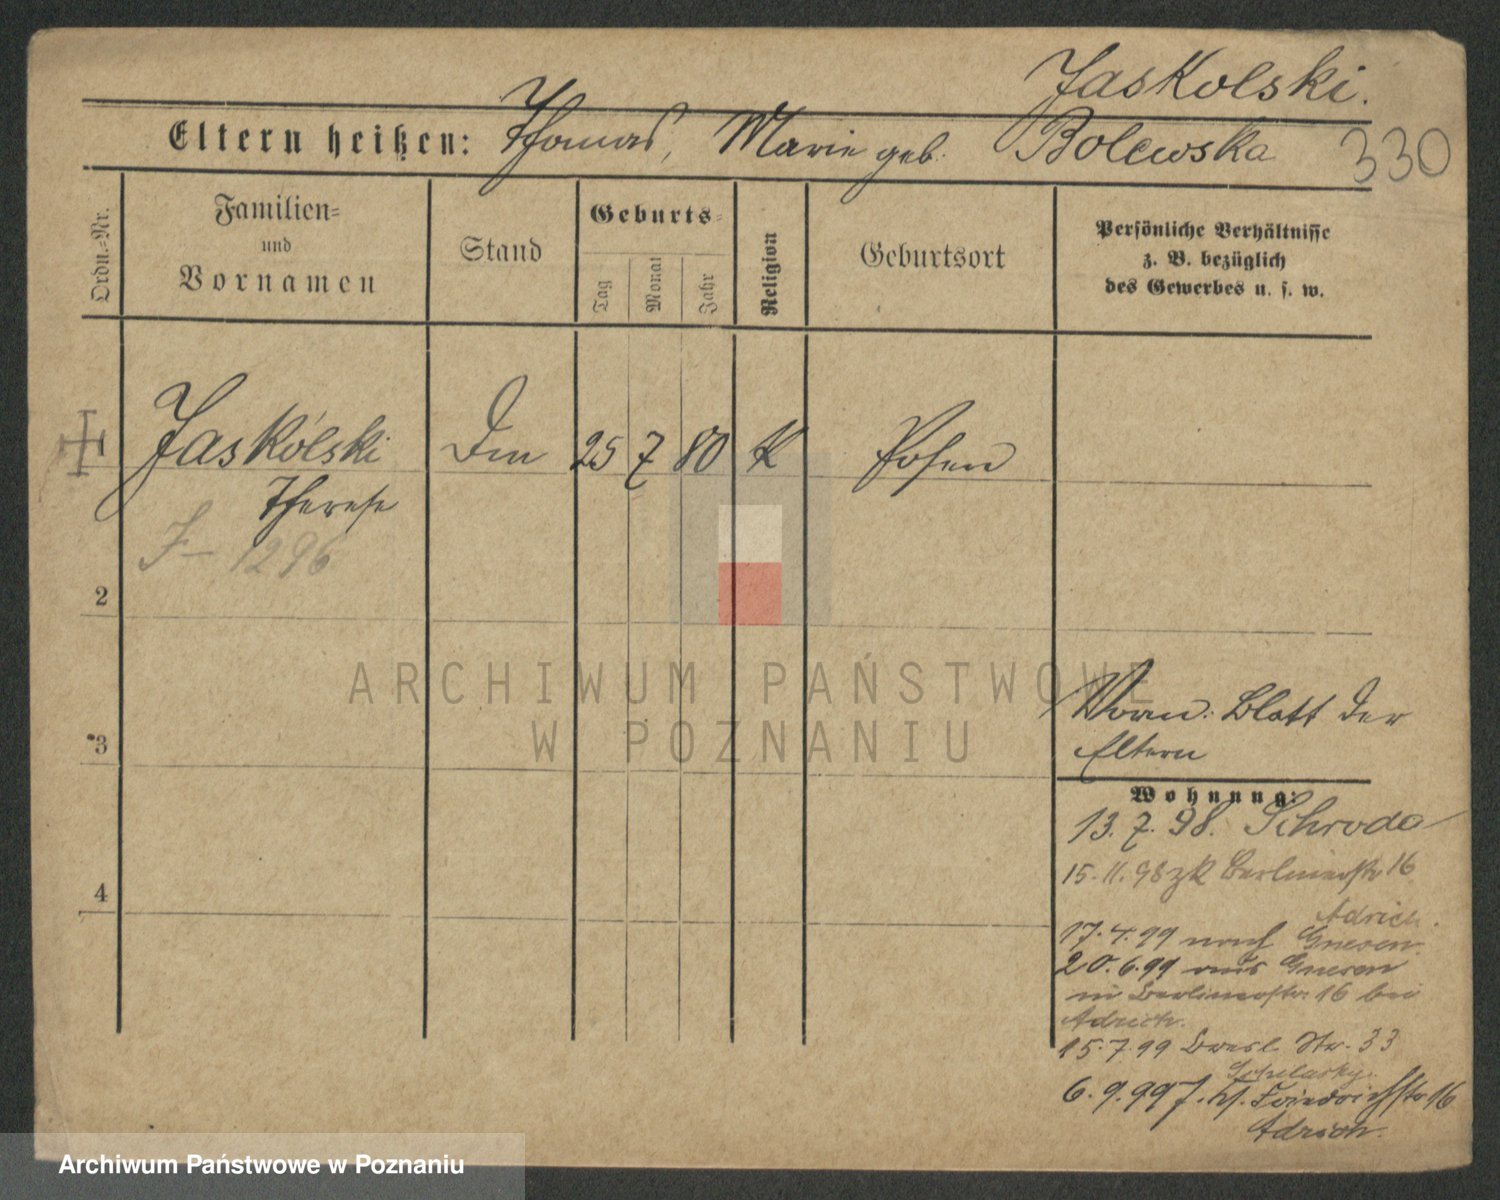 Jaskolski.
Eltern heißen: Thomas, Marie geb. Bolewska
330
Ordn.-Nr.
Familien-
und
Vornamen
Stand
Geburts-
Tag
Monat
Jahr
Religion
Geburtsort
Persönliche Verhältnisse
z. B. bezüglich
des Gewerbes u. s. w.
Jaskólski 25 7 80 K Posen
Therese
J- 1296
2
ARCHIWUM PAŃSTWOWE
W POZNANIU
Blatt der
3
Eltern
Wohnung:
13. 7. 98. Schroda
15. 11. 98 zk Berlinerstr 16
4
Adrich.
17. 4. 99 nach Gnesen
20. 6. 99 aus Gnesen
in Berlinerstr 16 bei
Adrich.
15. 7. 99 Bresl. Str. 33
6. 9. 99 Friedrichstr 16
Adrich.
Archiwum Państwowe w Poznaniu